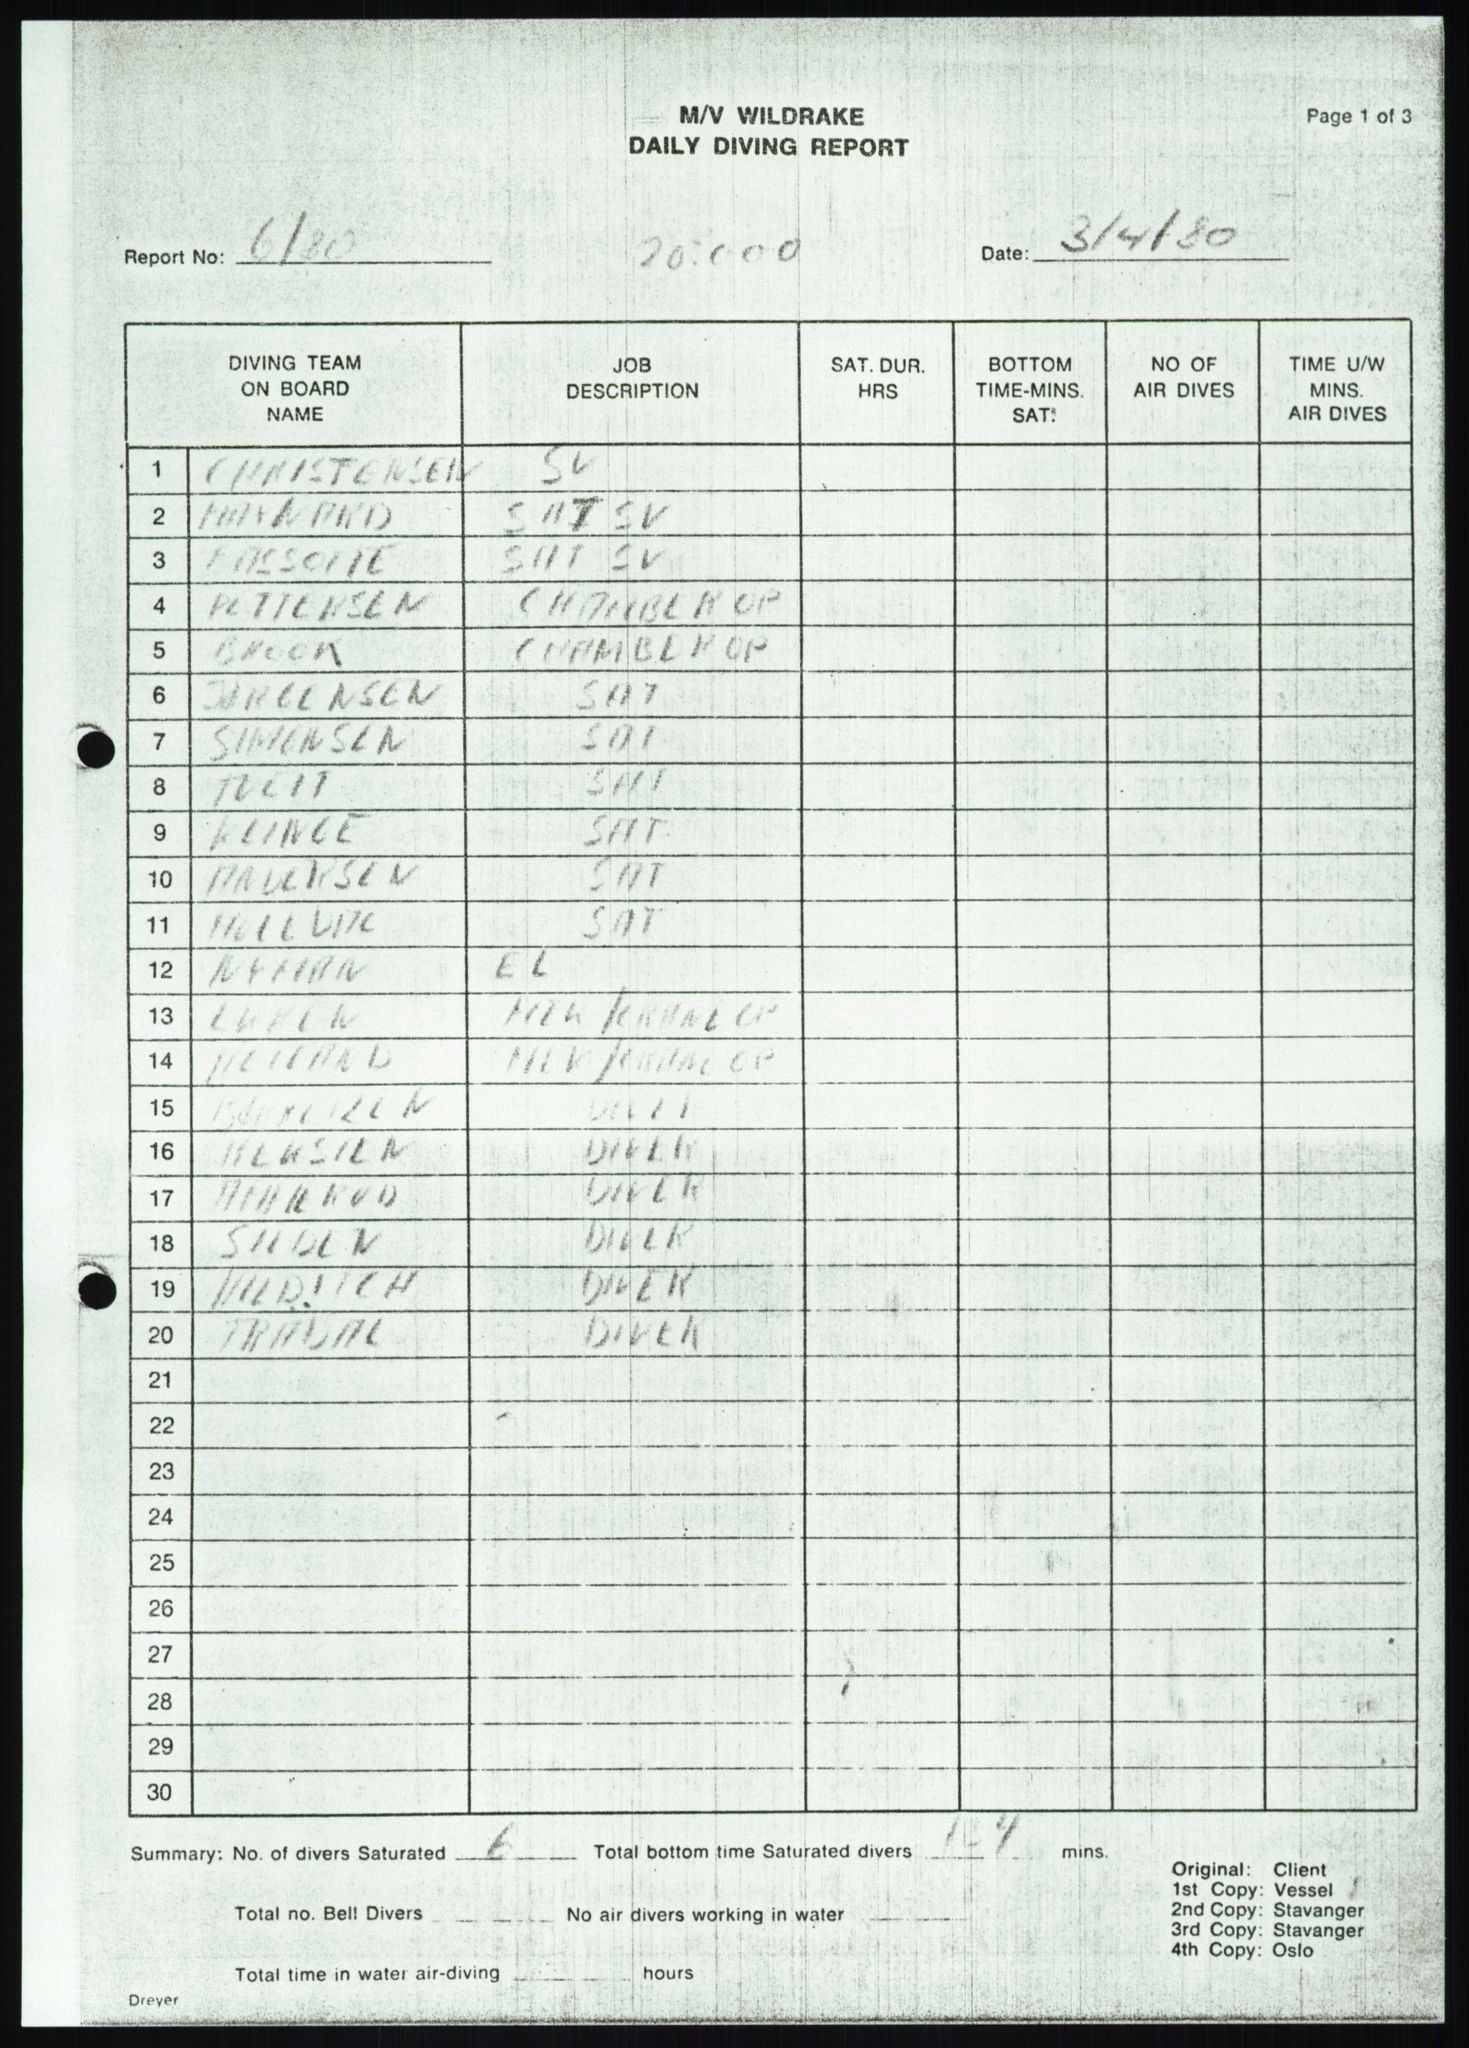 M/V WILDRAKE
DAILY DIVING REPORT
Page 1 of 3
Report No: 6/80
20:000
Date: 3/4/80
DIVING TEAM ON BOARD NAME
JOB DESCRIPTION
SAT. DUR. HRS
BOTTOM TIME-MINS. SAT.
NO OF AIR DIVES
TIME U/W MINS. AIR DIVES
1 CHRISTENSEN SV
2 MAYNARD SAT SV
3 SAT SV
4 PETTERSEN CHAMBER OP
5 BROOK CHAMBER OP
6 JØRGENSEN SAT
7 SIMENSEN SAT
8 TVEIT SAT
9 KLINGE SAT
10 ANDERSEN SAT
11 SAT
12 NYMAN EL
13 MEK/KRANE OP
14 MEK/KRANE OP
15 DIVER
16 DIVER
17 DIVER
18 DIVER
19 DIVER
20 TRADAL DIVER
21
22
23
24
25
26
27
28
29
30
Summary: No. of divers Saturated 6 Total bottom time Saturated divers mins.
Total no. Bell Divers No air divers working in water
Total time in water air-diving hours
Original: Client
1st Copy: Vessel
2nd Copy: Stavanger
3rd Copy: Stavanger
4th Copy: Oslo
Dreyer